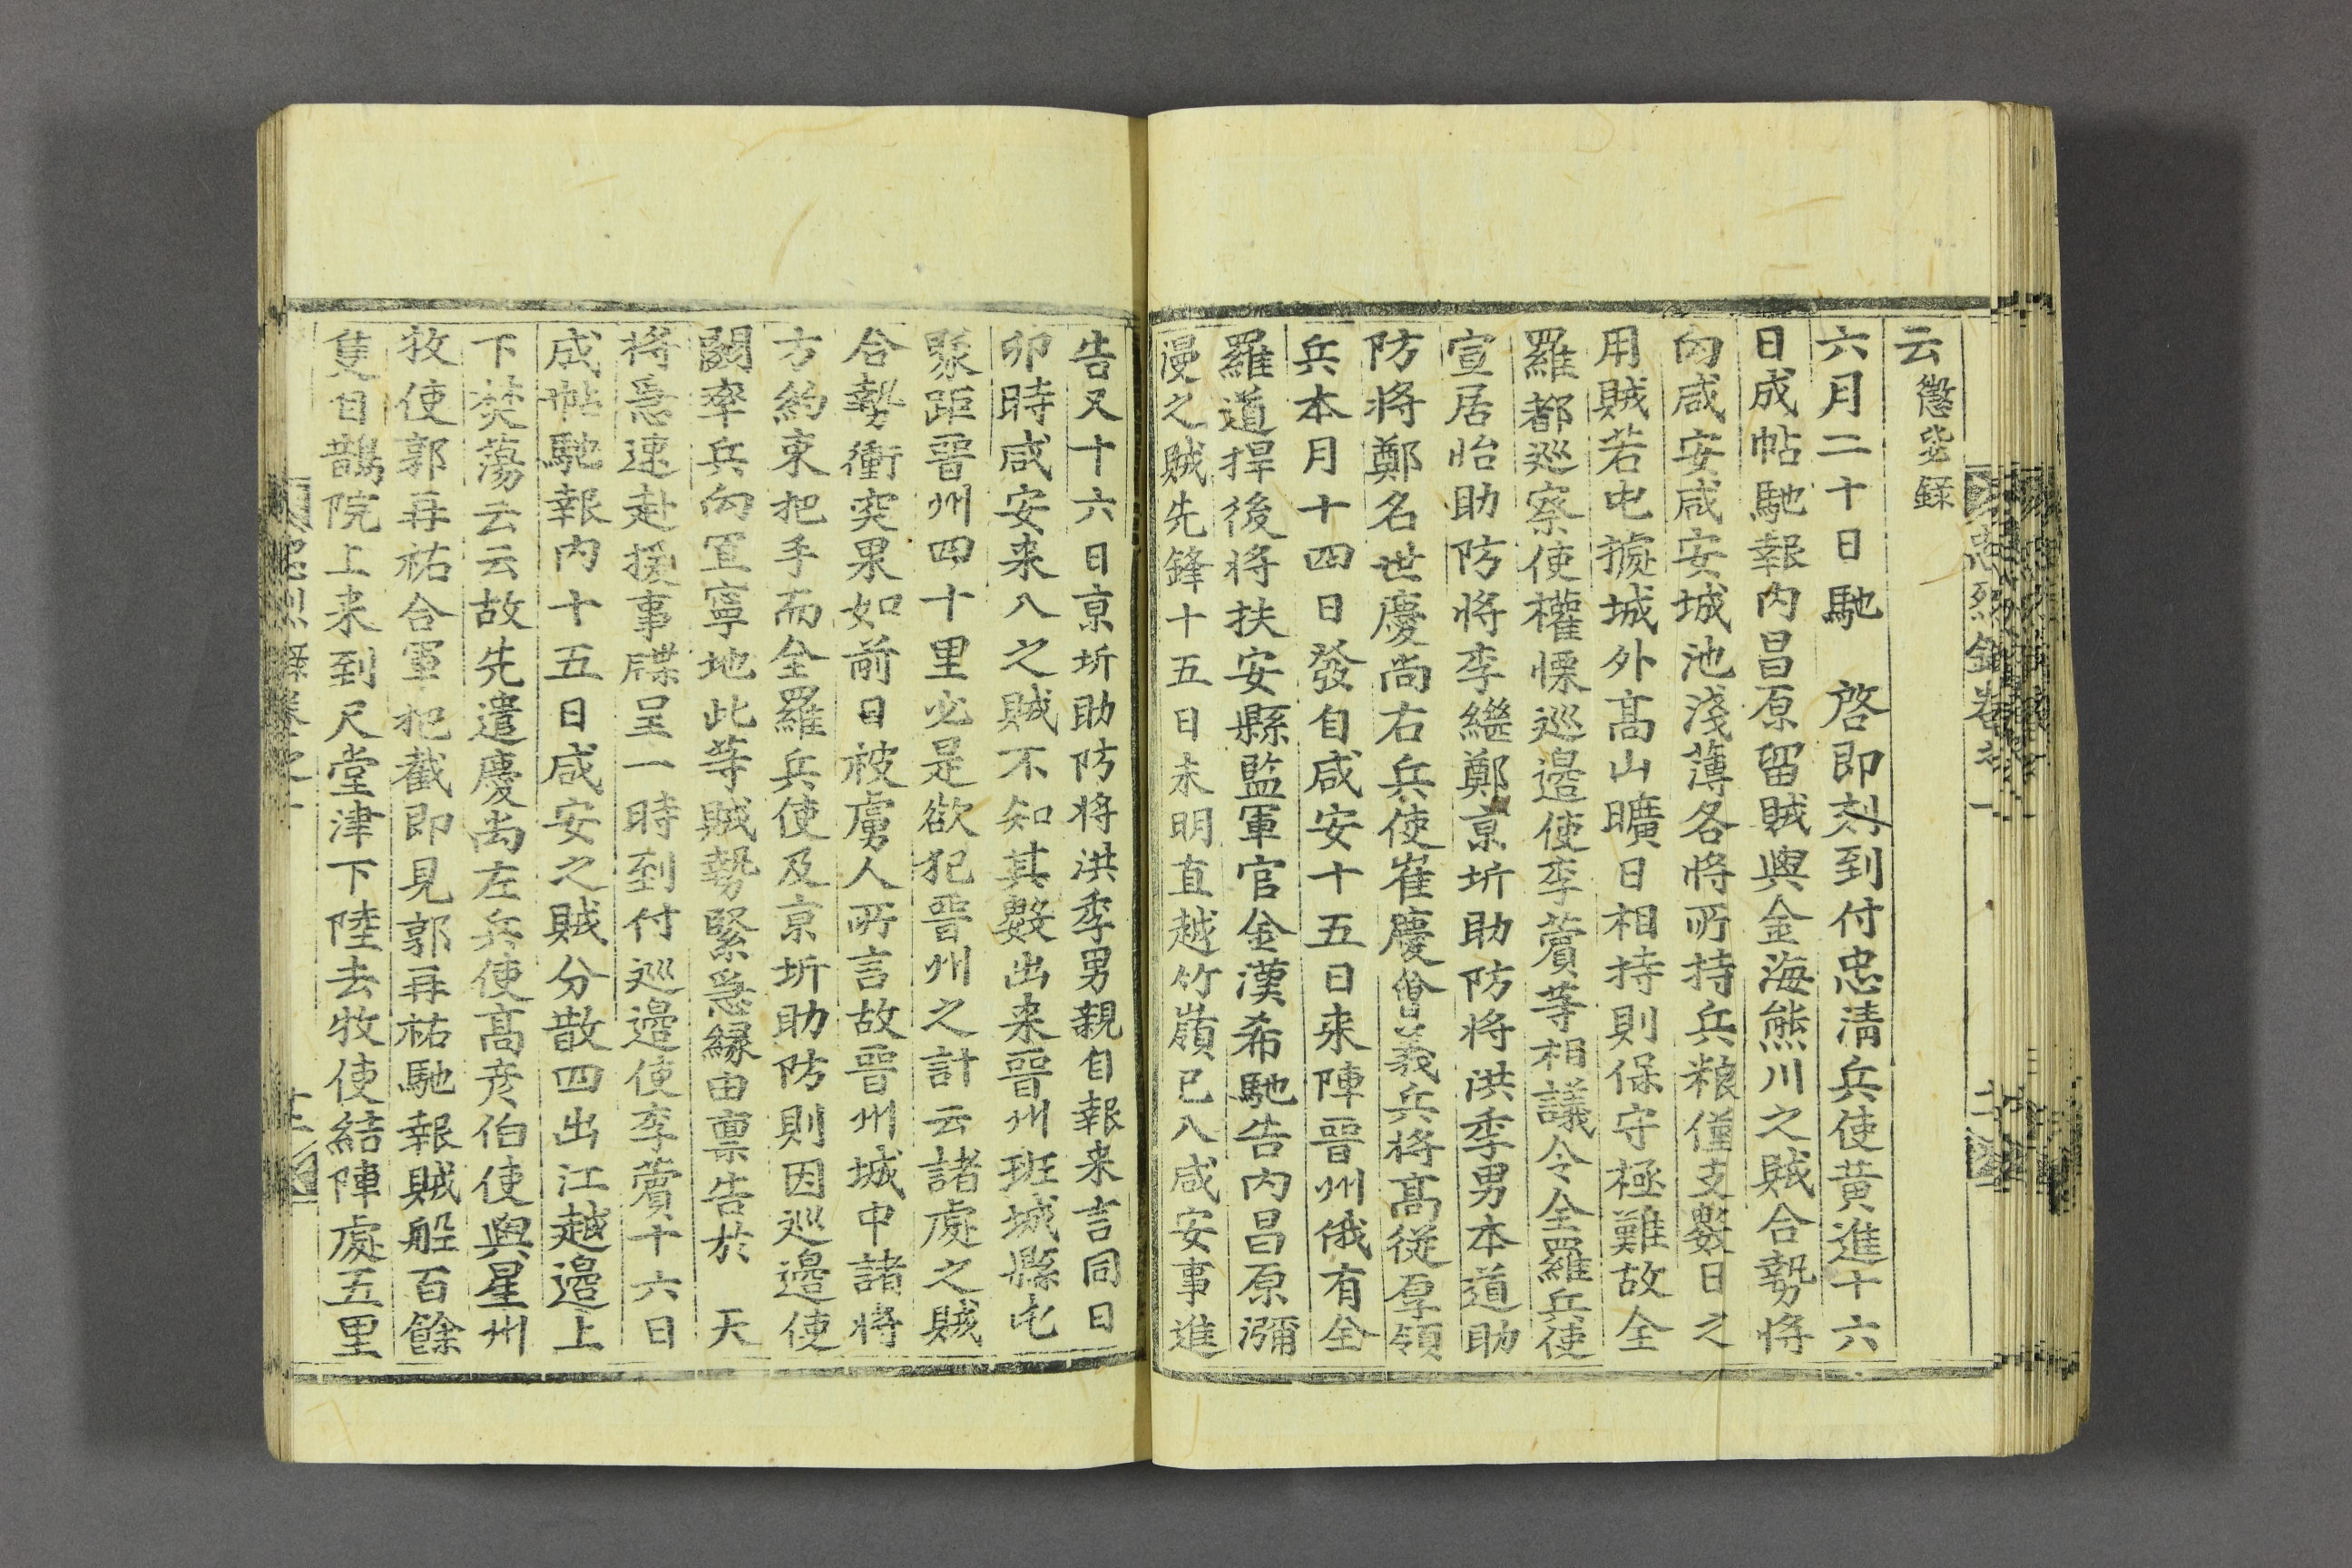 云 懲毖録
六月二十日馳 啓即刻到付忠淸兵使黄進十六
日成帖馳報内昌原留賊與金海熊川之賊合勢将
向咸安咸安城池淺薄各将所持兵粮僅支數日之
用賊若屯據城外髙山曠日相持則保守極難故全
羅都巡察使權慄巡邉使李薲等相議令全羅兵使
宣居怡助防将李繼鄭京圻助防将洪季男本道助
防将鄭名世慶尚右兵使崔慶會義兵将髙従厚領
兵本月十四日發自咸安十五日来陣晋州俄有全
羅道捍後将扶安縣監軍官金漢希馳告内昌原瀰
漫之賊先鋒十五日未明直越竹嶺已入咸安事進
告又十六日京圻助防将洪季男親自報来言同日
卯時咸安来入之賊不知其數出来晋州班城縣屯
聚距晋州四十里必是欲犯晋州之計云諸處之賊
合勢衝突果如前日被虜人所言故晋州城中諸将
方約束把手而全羅兵使及京圻助防則因巡邉使
關率兵向冝寧地此等賊勢緊急縁由禀告於 天
将急速赴援事牒呈一時到付巡邉使李薲十六日
成帖馳報内十五日咸安之賊分散四出江越邉上
下焚蕩云云故先遣慶尚左兵使髙彦伯使與星州
牧使郭再祐合軍把截即見郭再祐馳報賊船百餘
隻自鵲院上来到尺堂津下陸去牧使結陣處五里
忠烈録卷之一